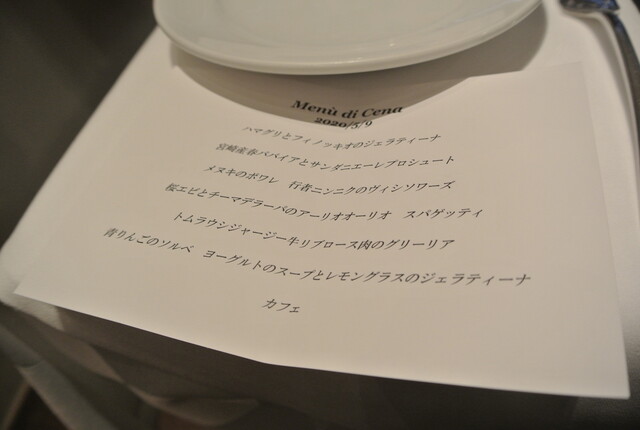 Menù di Cena
2020/5/9
ハマグリとフィノッキオのジェラティーナ
宮崎産春パパイアとサンダニエーレプロシュート
メヌキのポワレ　行者ニンニクのヴィシソワーズ
桜エビとチーマデラーパのアーリオオーリオ　スパゲッティ
トムラウシジャージー牛リブロース肉のグリーリア
青りんごのソルベ　ヨーグルトのスープとレモングラスのジェラティーナ
カフェ